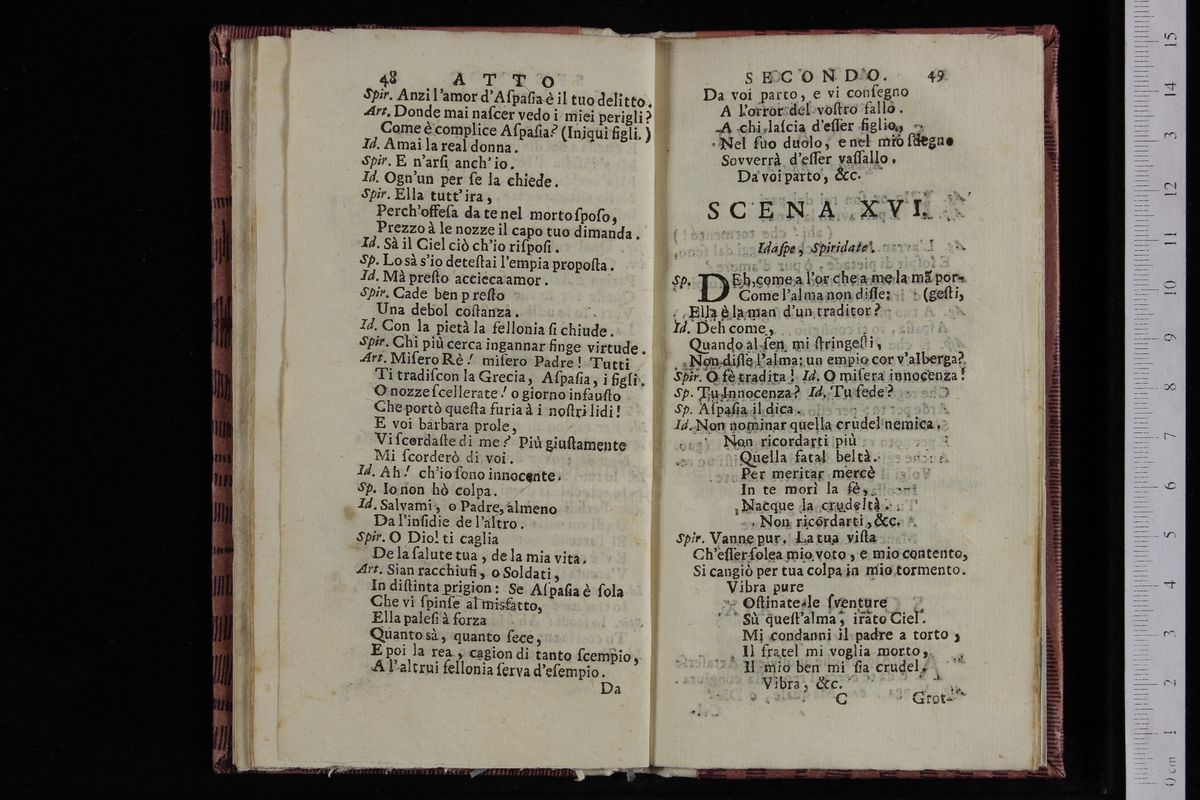 48 ATTO
Spir. Anzi l'amor d'Aſpaſia è il tuo delitto.
Art. Donde mai naſcer vedo i miei perigli?
Come è complice Aſpaſia? (Iniqui figli.)
Id. Amai la real donna.
Spir. E n'arſi anch'io.
Id. Ogn'un per ſe la chiede.
Spir. Ella tutt'ira,
Perch'offeſa da te nel morto ſpoſo,
Prezzo à le nozze il capo tuo dimanda.
Id. Sà il Ciel ciò ch'io riſpoſi.
Sp. Lo sà s'io deteſtai l'empia propoſta.
Id. Mà preſto accieca amor.
Spir. Cade ben p reſto
Una debol coſtanza.
Id. Con la pietà la fellonia ſi chiude.
Spir. Chi più cerca ingannar finge virtude.
Art. Miſero Rè! miſero Padre! Tutti
Ti tradiſcon la Grecia, Aſpaſia, i figli.
O nozze ſcellerate! o giorno infauſto
Che portò queſta furia à i noſtri lidi!
E voi barbara prole,
Vi ſcordaſte di me? Più giuſtamente
Mi ſcorderò di voi.
Id. Ah! ch'io ſono innocente.
Sp. Io non hò colpa.
Id. Salvami, o Padre, almeno
Da l'inſidie de l'altro.
Spir. O Dio! ti caglia
De la ſalute tua, de la mia vita.
Art. Sian racchiuſi, o Soldati,
In diſtinta prigion: Se Aſpaſia è ſola
Che vi ſpinſe al misfatto,
Ella paleſi à forza
Quanto sà, quanto fece,
E poi la rea, cagion di tanto ſcempio,
A l'altrui fellonia ſerva d'eſempio.
Da
SECONDO. 49
Da voi parto, e vi conſegno
A l'orror del voſtro fallo.
A chi laſcia d'eſſer figlio,
Nel ſuo duolo, e nel mio ſdegno
Sovverrà d'eſſer vaſſallo.
Da voi parto, &c.
SCENA XVI.
Idaſpe, Spiridate.
Sp. DEh, come a l'or che a me la mã por-
Come l'alma non diſſe: (geſti,
Ella è la man d'un traditor?
Id. Deh come,
Quando al ſen mi ſtringeſti,
Non diſſe l'alma: un empio cor v'alberga?
Spir. O fè tradita! Id. O miſera innocenza!
Sp. Tu Innocenza? Id. Tu fede?
Sp. Aſpaſia il dica.
Id. Non nominar quella crudel nemica.
Non ricordarti più
Quella fatal beltà.
Per meritar mercè
In te morì la fè,
Nacque la crudeltà.
Non ricordarti, &c.
Spir. Vanne pur. La tua viſta
Ch'eſſer ſolea mio voto, e mio contento,
Si cangiò per tua colpa in mio tormento.
Vibra pure
Oſtinate le ſventure
Sù queſt'alma, irato Ciel.
Mi condanni il padre a torto,
Il fratel mi voglia morto,
Il mio ben mi ſia crudel.
Vibra, &c.
C Grot-
0 cm 1 2 3 4 5 6 7 8 9 10 11 12 13 14 15